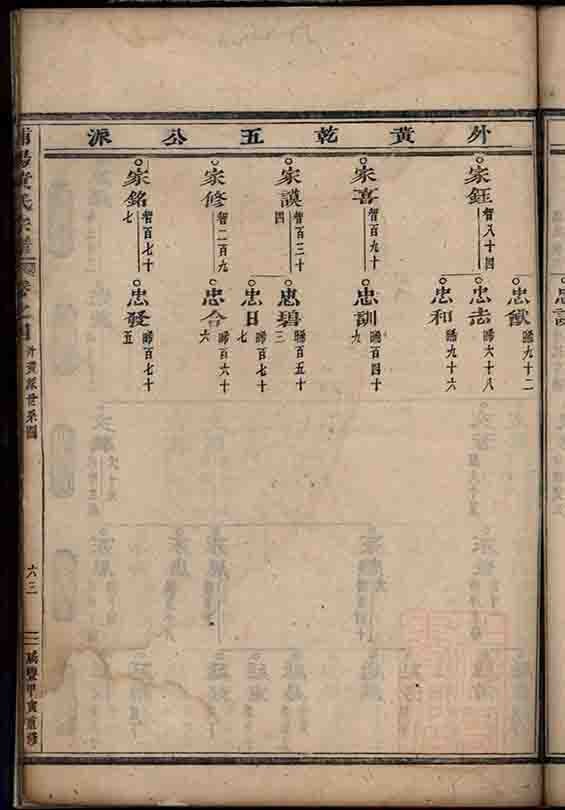 外黃乾五公派
家鈺 智八十四
忠欽 睎九十二
忠志 睎六十八
忠和 睎九十六
家喜 智百九十
忠訓 睎百四十九
家謨 智百三十四
忠碧 睎百五十三
忠日 睎百七十七
家修 智二百九
忠合 睎百六十六
家銘 智百七十七
忠發 睎百七十五
黃氏宗譜
卷之四
外黃派世系圖
六三
咸豐甲寅重修